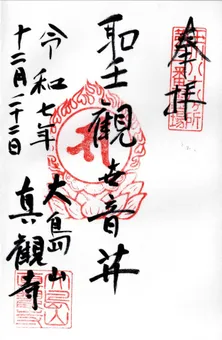 奉拝
聖觀世音𦬇
令和七年
十二月二十二日
大島山
真觀寺